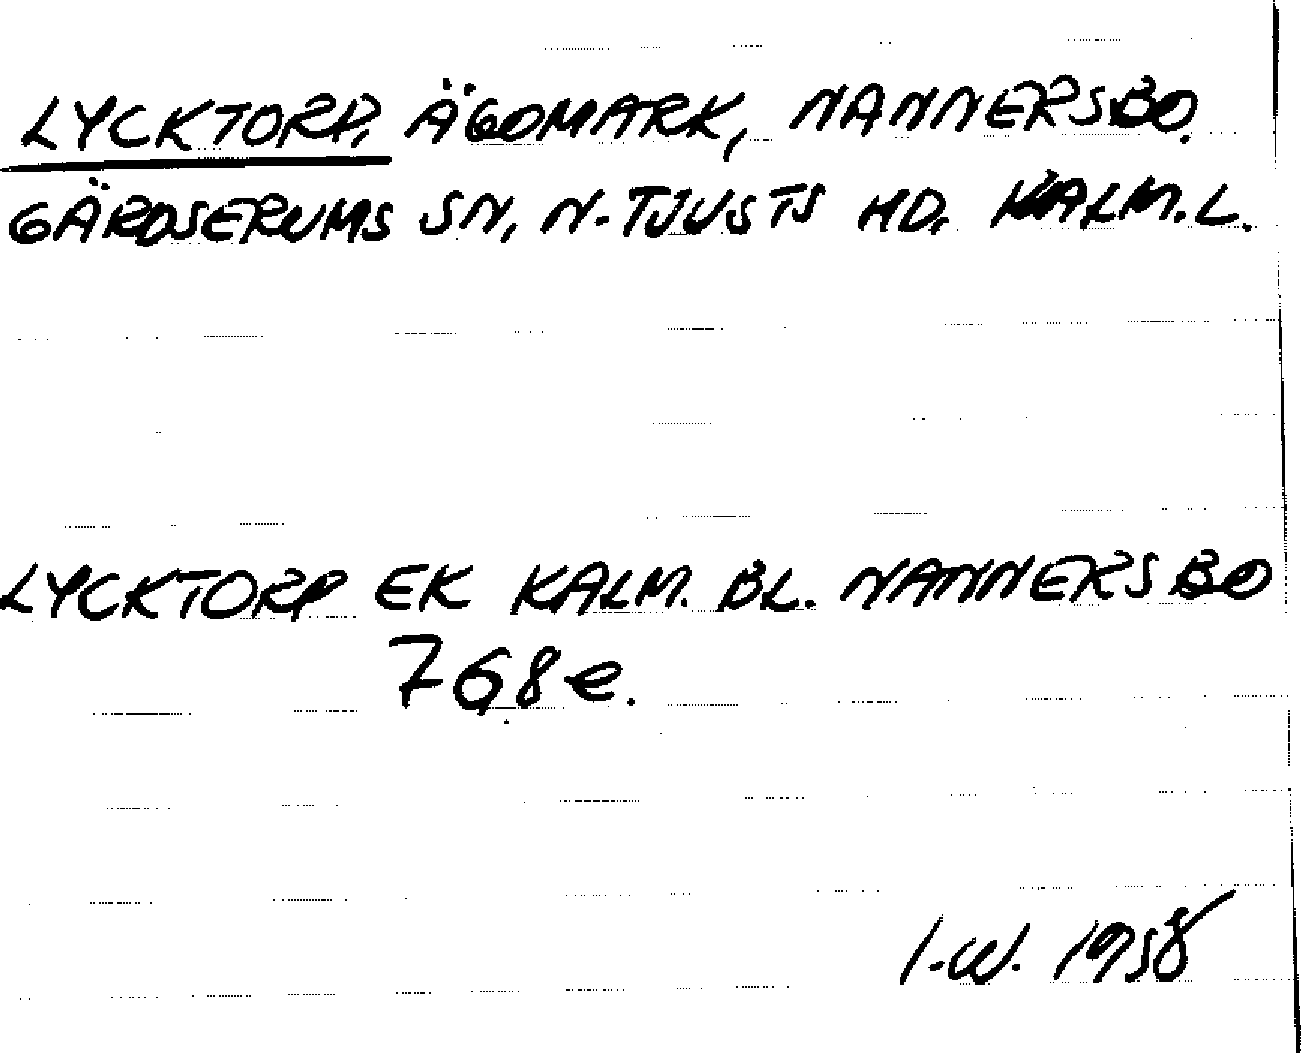 LYCKTORP, ÄGOMARK, NANNERSBO.
GÄRDSERUMS SN, N. TJUSTS HD, KALM. L.
LYCKTORP EK KALM. BL. NANNERSBO
768e.
I.W. 1958